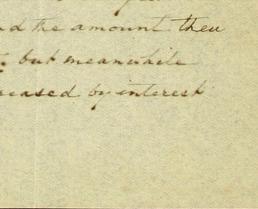 nd the amount then
but meanwhile
creased by interest